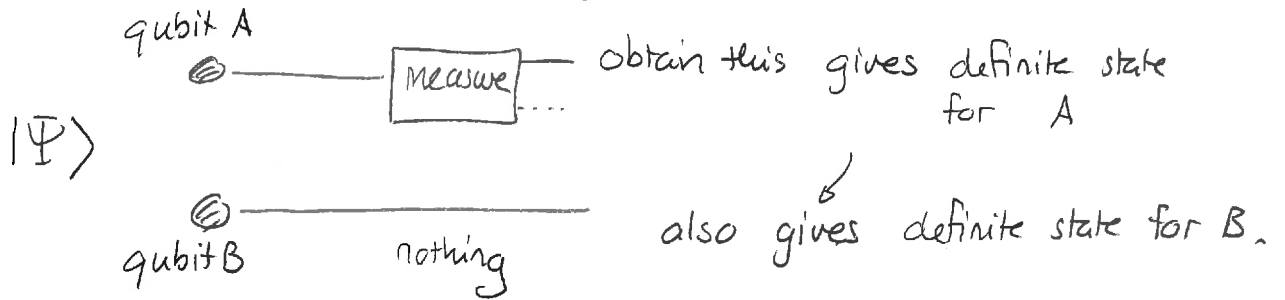 qubit A
measure
obtain this gives definite state
for A
|Ψ⟩
also gives definite state for B.
qubit B
nothing